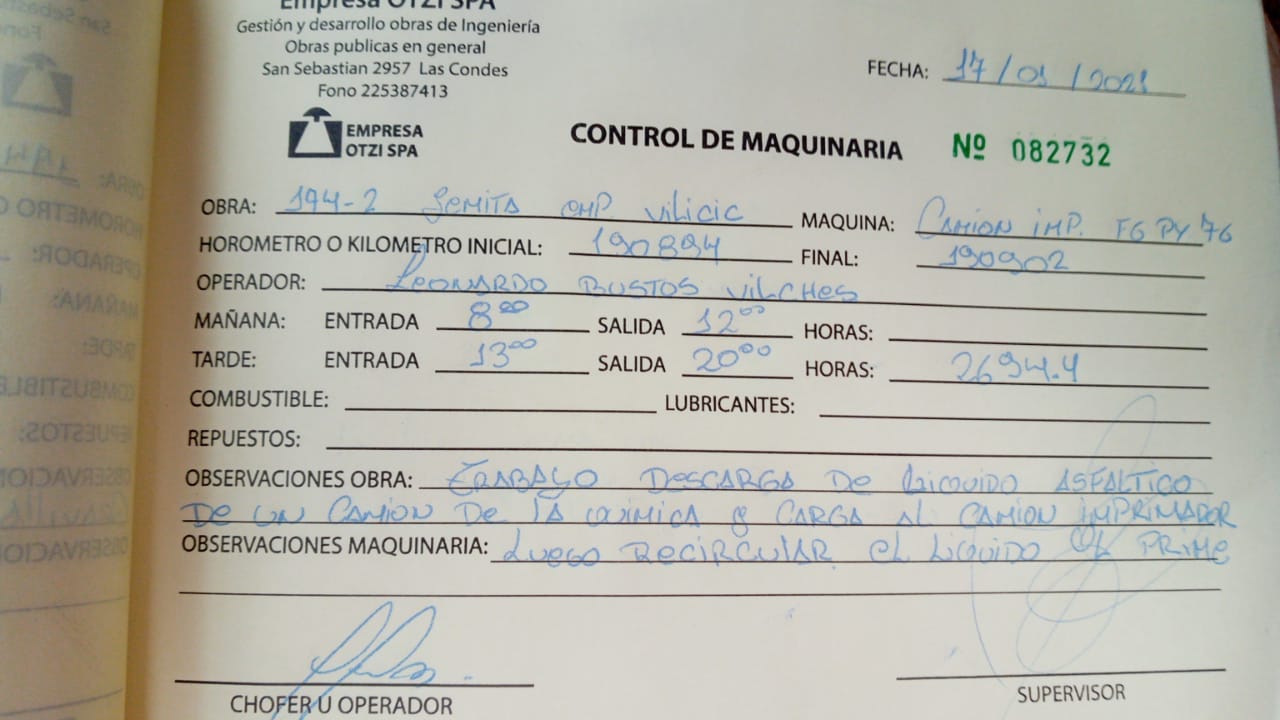 Empresa OTZI SPA
Gestión y desarrollo obras de Ingeniería
Obras publicas en general
San Sebastian 2957 Las Condes
Fono 225387413
FECHA: 17/01/2021
EMPRESA
OTZI SPA
CONTROL DE MAQUINARIA Nº 082732
OBRA: 194-2 SEMITA EMP. VILICIC MAQUINA: CAMION IMP. FGPY76
HOROMETRO O KILOMETRO INICIAL: 190894 FINAL: 190902
OPERADOR: LEONARDO BUSTOS VILCHES
MAÑANA: ENTRADA 8⁰⁰ SALIDA 12⁰⁰ HORAS:
TARDE: ENTRADA 13⁰⁰ SALIDA 20⁰⁰ HORAS: 2694.4
COMBUSTIBLE: LUBRICANTES:
REPUESTOS:
OBSERVACIONES OBRA: TRABAJO DESCARGA DE LIQUIDO ASFALTICO
DE UN CAMION DE LA QUIMICA y CARGA AL CAMION IMPRIMADOR
OBSERVACIONES MAQUINARIA: LUEGO RECIRCULAR EL LIQUIDO PRIME
CHOFER U OPERADOR SUPERVISOR